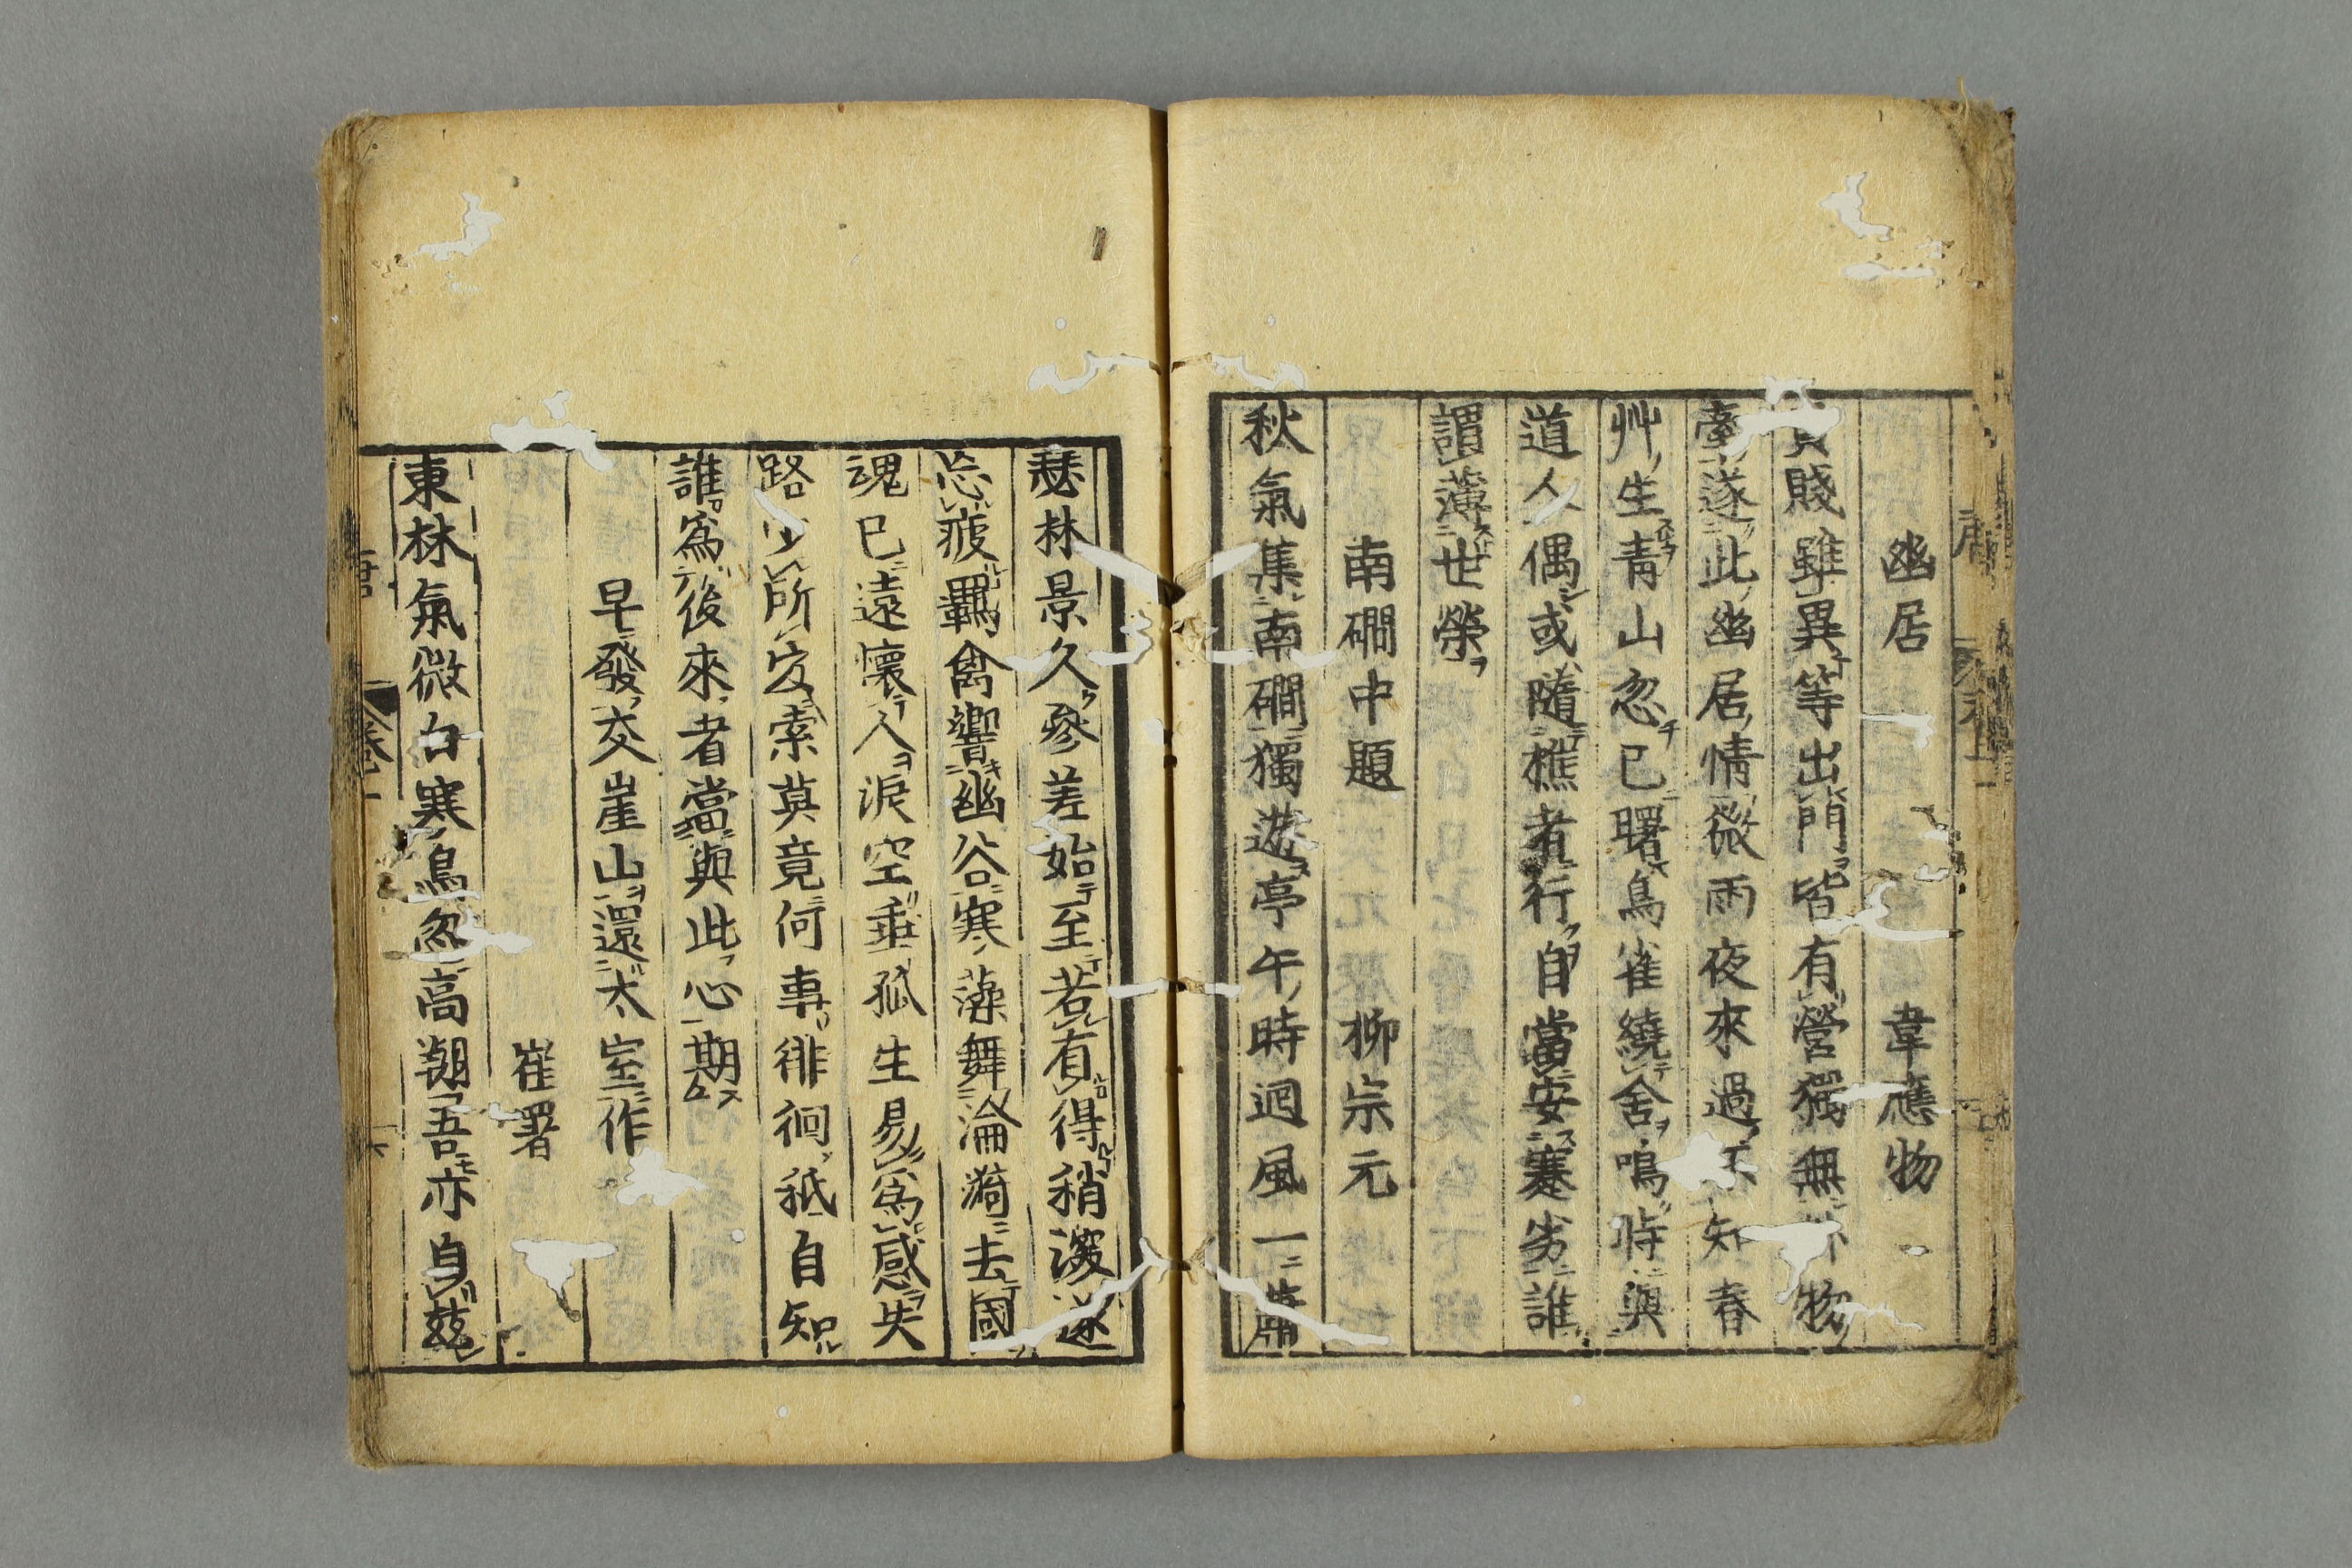 幽居 韋應物
賤雖異等出門皆有營獨無物
牽遂此幽居情微雨夜來過不知春
艸生青山忽已曙鳥雀繞舍鳴時與
道人偶或隨樵者行自當安蹇劣誰
謂薄世榮
南磵中題 柳宗元
秋氣集南磵獨遊亭午時迴風一蕭
瑟林景久參差始至若有得稍深遂
忘疲羈禽響幽谷寒藻舞淪漪去國
魂已遠懷人淚空垂孤生易爲感失
路少所宜索莫竟何事徘徊祇自知
誰爲後來者當與此心期
早發交崖山還太室作
崔署
東林氣微白寒鳥忽高翔吾亦自玆